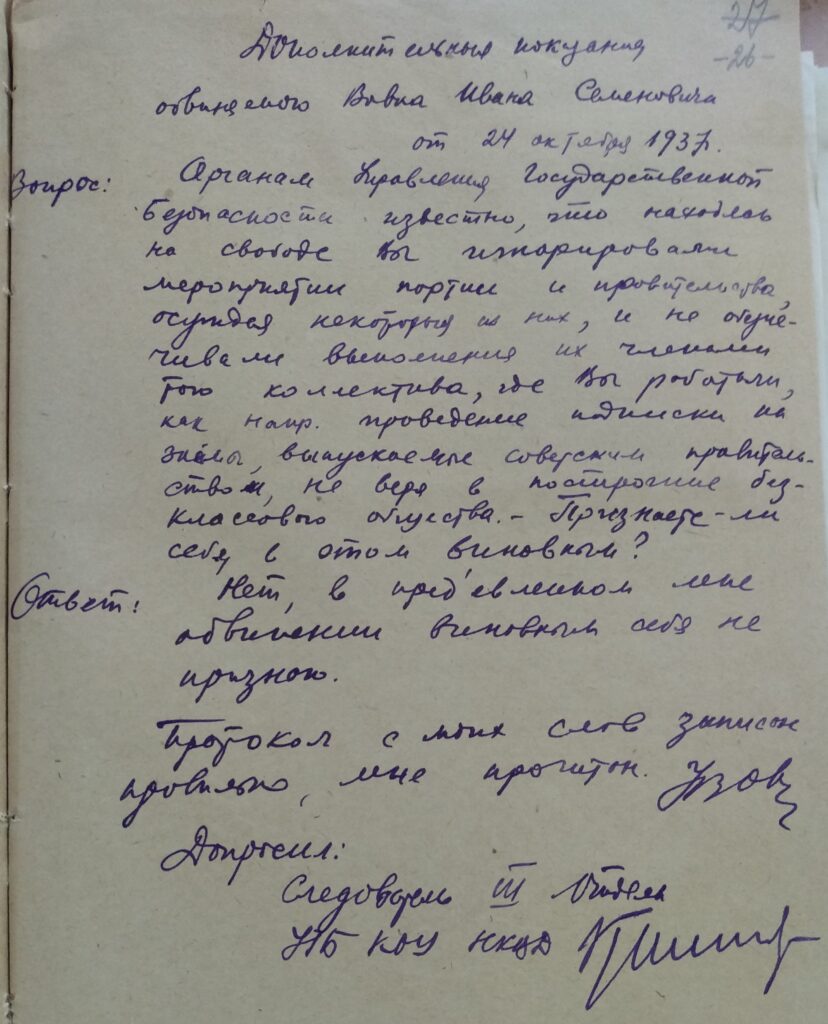 27
-26-
Дополнительныя показания
обвиняемого Вовка Ивана Семеновича
от 24 октября 1937.
Вопрос: Органам Управления Государственной
Безопасности известно, что находясь
на свободе Вы игнорировали
мероприятии партии и правительства,
осуждая некоторыя из них, и не обеспе-
чивали выполнения их членами
того коллектива, где Вы работали,
как напр. проведение подписки на
займы, выпускаемые советским правитель-
ством, не веря в построение без-
классового общества. - Признаете-ли
себя в этом виновным?
Ответ: Нет, в пред'евленном мне
обвинении виновным себя не
признаю.
Протокол с моих слов записан
правильно, мне прочитан.
Допросил:
Следователь III Отдела
УГБ КОУ НКВД